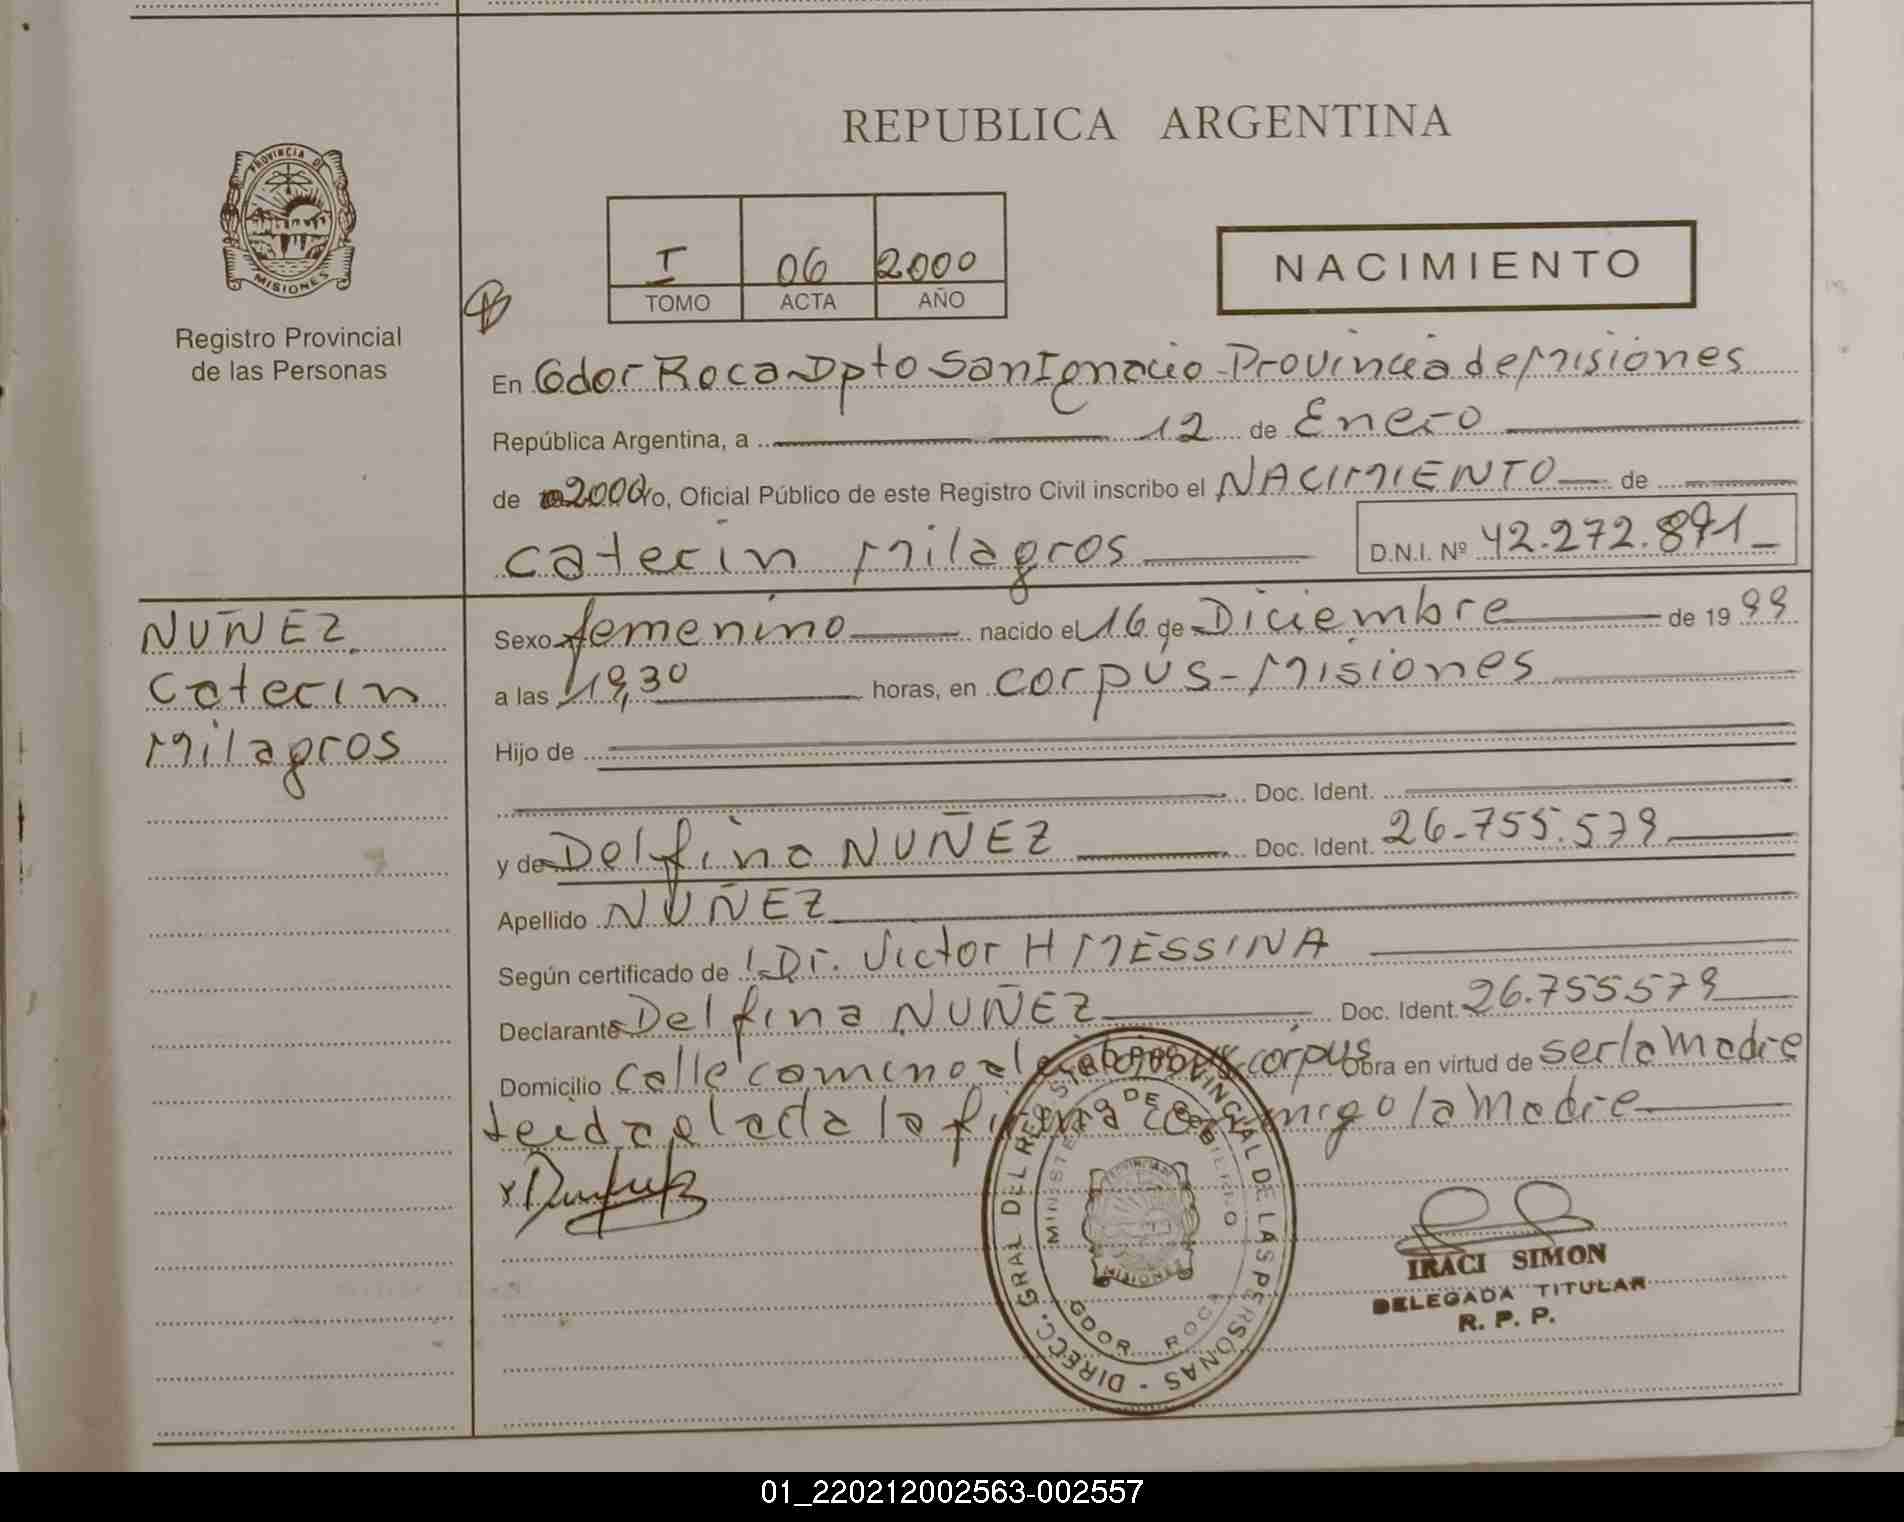 REPUBLICA ARGENTINA
PROVINCIA DE
MISIONES
Registro Provincial
de las Personas
I 06 2000
TOMO ACTA AÑO
NACIMIENTO
En Gdor Roca Dpto San Ignacio Provincia de Misiones
República Argentina, a 12 de Enero
de 2000 o, Oficial Público de este Registro Civil inscribo el NACIMIENTO de
Caterin Milagros D.N.I. Nº 42.272.891
NUÑEZ
Caterin
Milagros
Sexo femenino nacido el 16 de Diciembre de 19 99
a las 19,30 horas, en Corpus - Misiones
Hijo de
Doc. Ident.
y de Delfina NUÑEZ Doc. Ident. 26.755.579
Apellido NUÑEZ
Según certificado de Dr. Victor H MESSINA
Declarante Delfina NUÑEZ Doc. Ident. 26.755579
Domicilio Calle camino al Corpus Obra en virtud de ser la Madre
leida el acta la firma conmigo la Madre
DIRECC. GRAL DEL REGISTRO PROVINCIAL DE LAS PERSONAS
MINISTERIO DE GOBIERNO
PROVINCIA DE
MISIONES
GDOR. ROCA
IRACI SIMON
DELEGADA TITULAR
R. P. P.
01_220212002563-002557